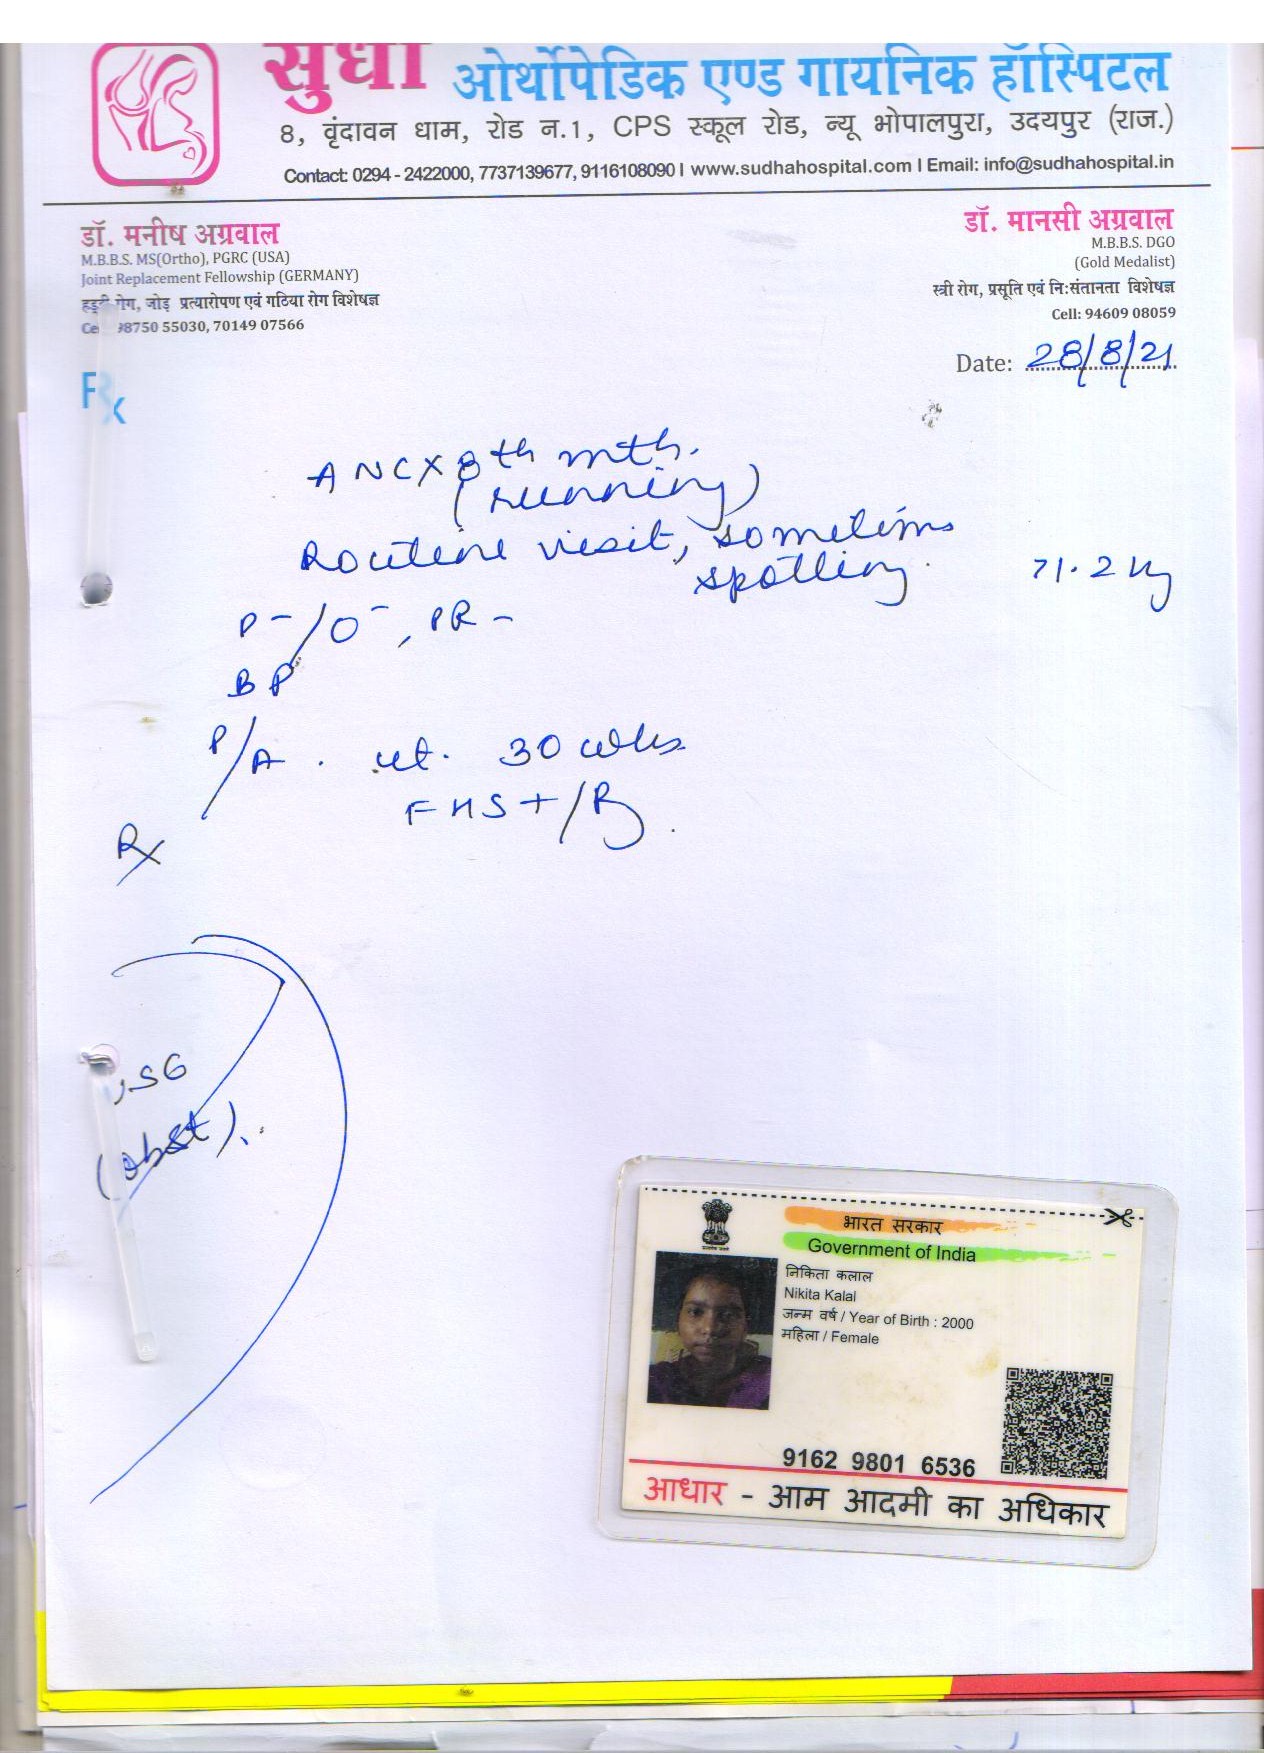 सुधा ओर्थोपेडिक एण्ड गायनिक हॉस्पिटल
8, वृंदावन धाम, रोड न.1, CPS स्कूल रोड, न्यू भोपालपुरा, उदयपुर (राज.)
Contact: 0294 - 2422000, 7737139677, 9116108090 I www.sudhahospital.com I Email: info@sudhahospital.in
डॉ. मनीष अग्रवाल
M.B.B.S. MS(Ortho), PGRC (USA)
Joint Replacement Fellowship (GERMANY)
रोग, जोड़ प्रत्यारोपण एवं गठिया रोग विशेषज्ञ
98750 55030, 70149 07566
डॉ. मानसी अग्रवाल
M.B.B.S. DGO
(Gold Medalist)
स्त्री रोग, प्रसूति एवं नि:संतानता विशेषज्ञ
Cell: 94609 08059
Date: 28/8/21
Rx
ANC X 8th mth.
(running)
Routine visit, sometims
spotting. 71.2 kg
P-/O-, PR-
BP
P/A . ut. 30 wks
FHS+/R.
Rx
USG
(obst).
भारत सरकार
Government of India
निकिता कलाल
Nikita Kalal
जन्म वर्ष / Year of Birth : 2000
महिला / Female
9162 9801 6536
आधार - आम आदमी का अधिकार